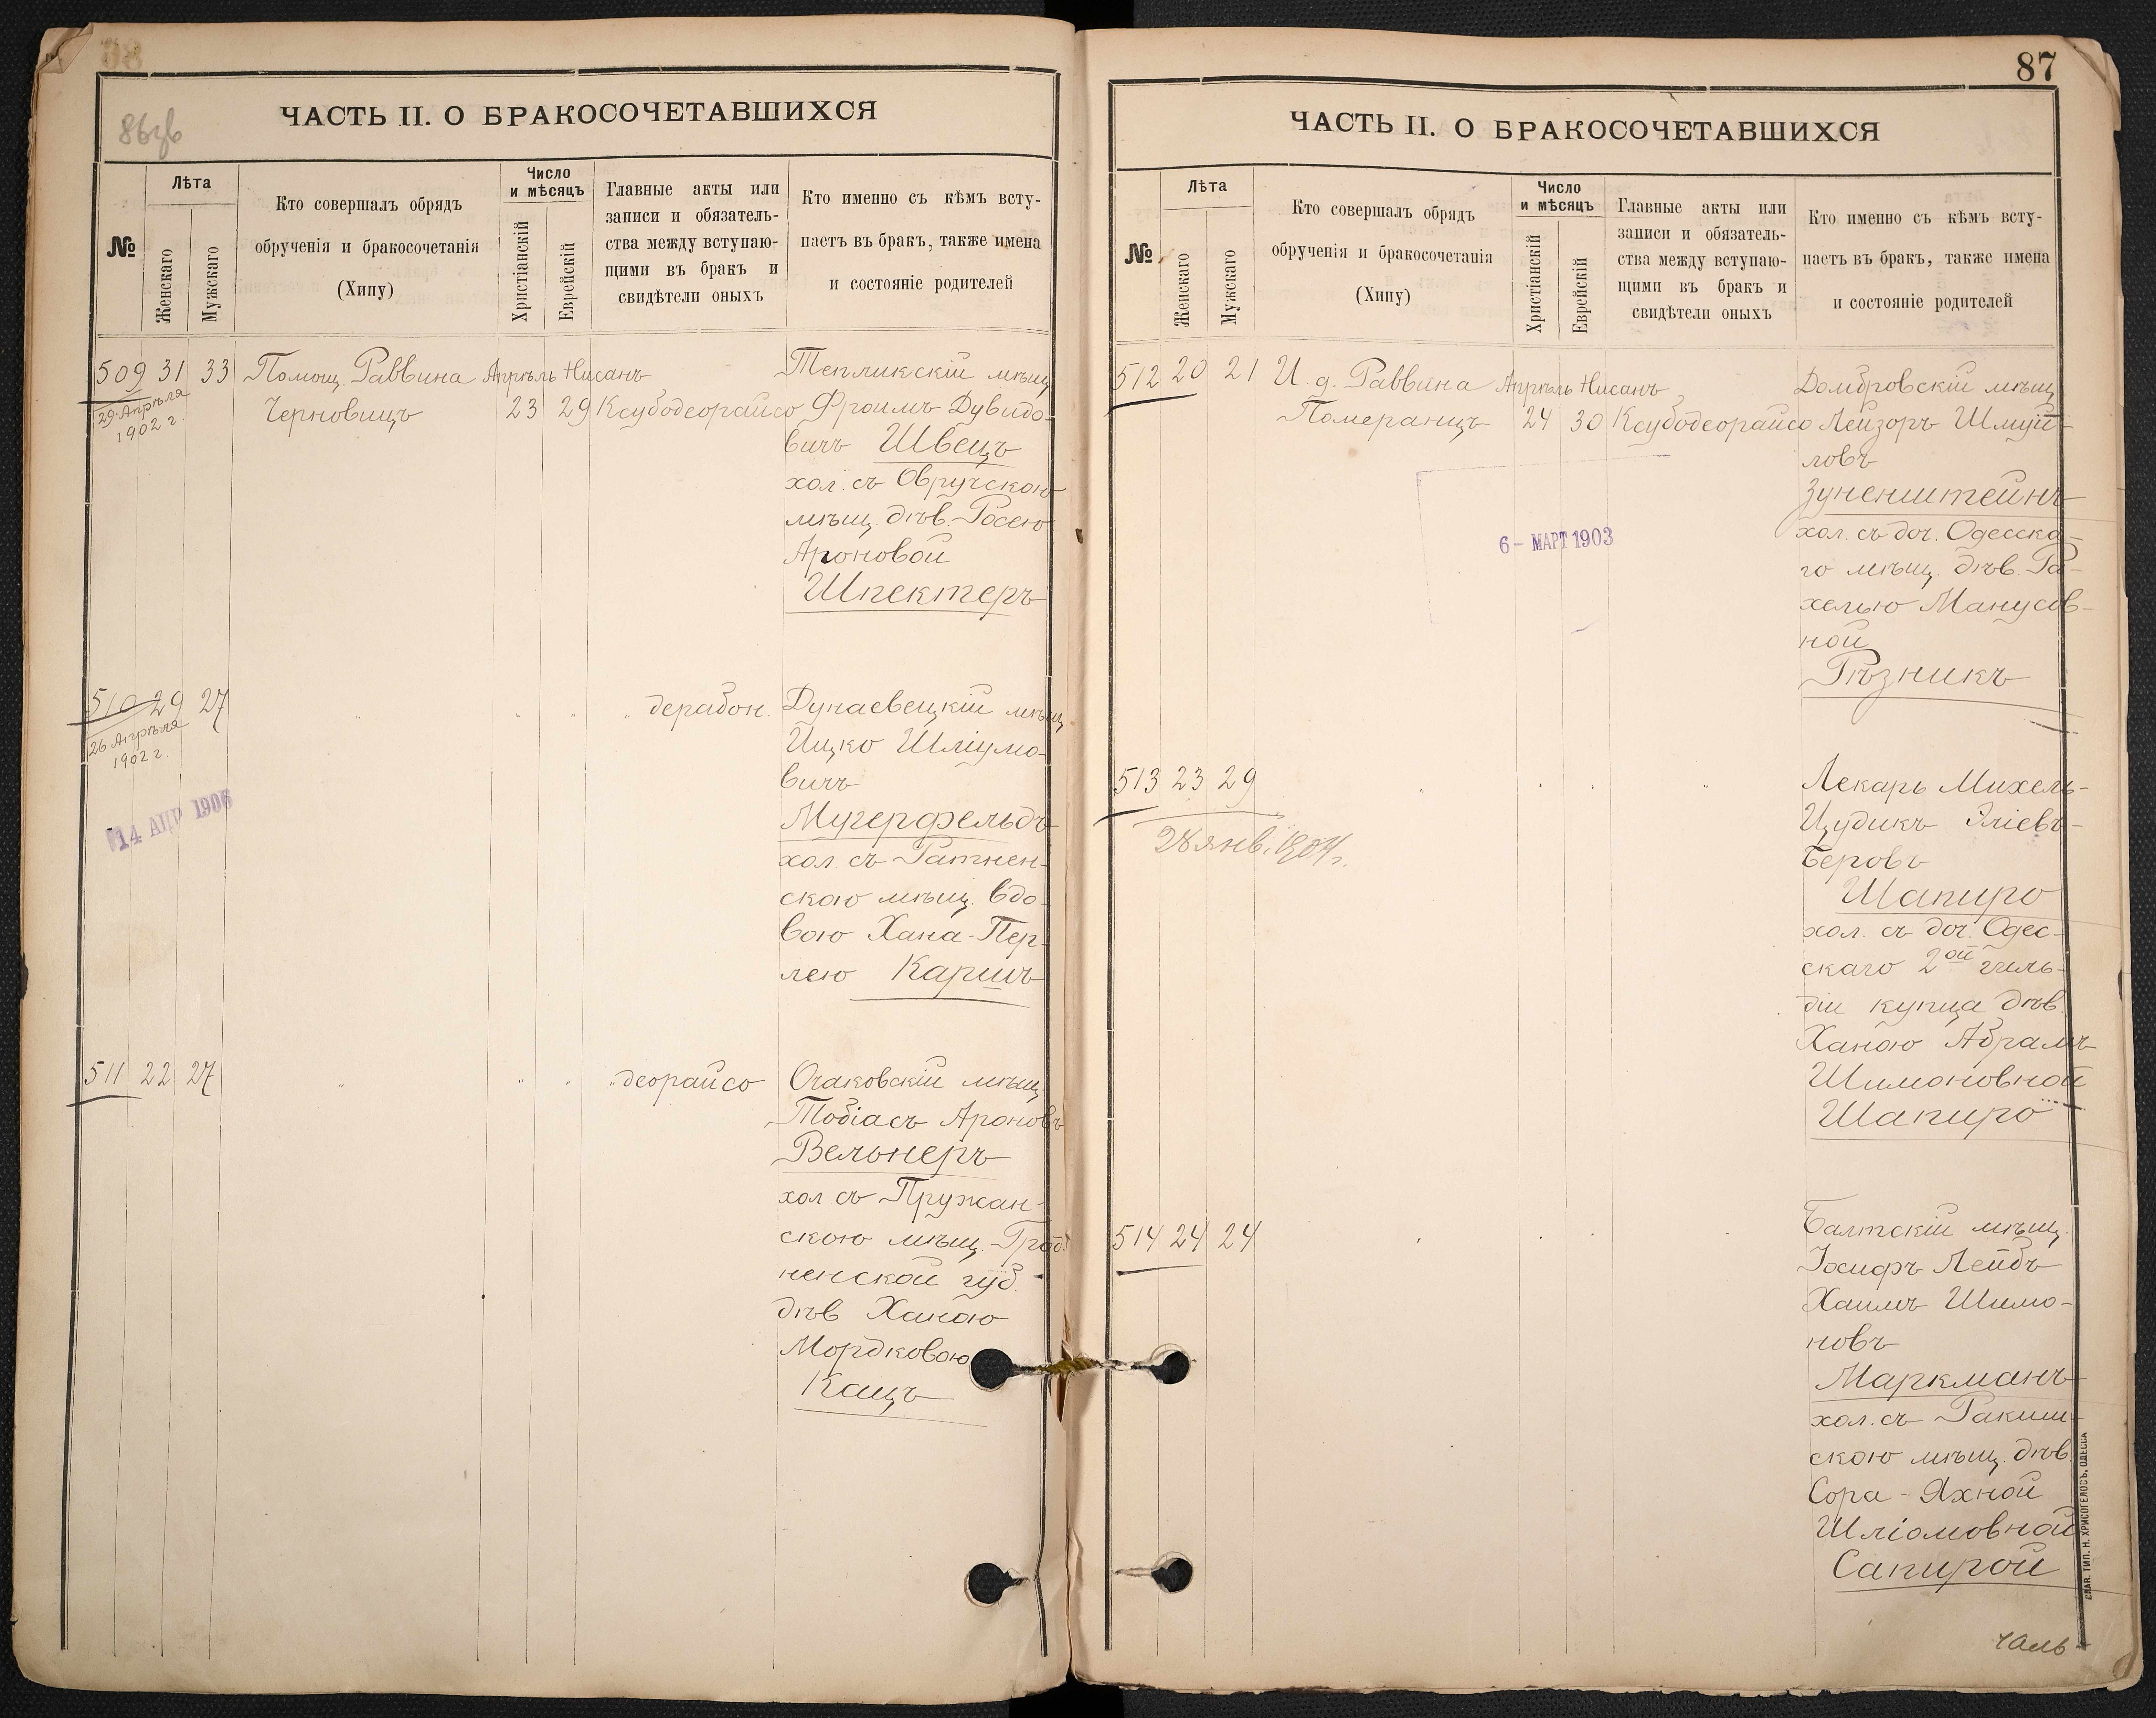 86об
ЧАСТЬ II. О БРАКОСОЧЕТАВШИХСЯ
№
Лѣта
Женскаго
Мужскаго
Кто совершалъ обрядъ
обрученія и бракосочетанія
(Хипу)
Число
и мѣсяцъ
Христіанскій
Еврейскій
Главные акты или
записи и обязатель-
ства между вступаю-
щими въ бракъ и
свидѣтели оныхъ
Кто именно съ кѣмъ всту-
паетъ въ бракъ, также имена
и состояніе родителей
509 31 33 Помощ. Раввина Апрѣль Нисанъ Тепликскій мѣщ.
29 Апрѣля
1902 г.
Черновицъ 23 29 Ксубодеорайсо Фроимъ Дувидо-
вичъ Швецъ
хол. съ Овручскою
мѣщ. дѣв. Росею
Ароновой
Шпектеръ
510 29 27 " " " " дерабон. Дунаевецкій мѣщ.
26 Апрѣля
1902 г.
Ицко Шліумо-
вичъ
14 АПР 1906
Мугерфельдъ
хол. съ Ратнен-
скою мѣщ. вдо-
вою Хана-Пер-
лею Каршъ
511 22 27 " " " " деорайсо Очаковскій мѣщ.
Тобіасъ Ароновъ
Вельнеръ
хол съ Пружан-
скою мѣщ. Грод-
ненской губ.
дѣв Ханою
Мордковою
Кацъ
87
ЧАСТЬ II. О БРАКОСОЧЕТАВШИХСЯ
№
Лѣта
Женскаго
Мужскаго
Кто совершалъ обрядъ
обрученія и бракосочетанія
(Хипу)
Число
и мѣсяцъ
Христіанскій
Еврейскій
Главные акты или
записи и обязатель-
ства между вступаю-
щими въ бракъ и
свидѣтели оныхъ
Кто именно съ кѣмъ всту-
паетъ въ бракъ, также имена
и состояніе родителей
512 20 21 И. д. Раввина Апрѣль Нисанъ Домбровскій мѣщ.
Померанцъ 24 30 Ксубодеорайсо Лейзоръ Шмуй-
ловъ
Зуненштейнъ
хол. съ доч. Одесска-
6 - МАРТ 1903
го мѣщ. дѣв. Ра-
хелью Манусов-
ной
Рѣзникъ
513 23 29 " " " " Лекарь Михель-
Цудикъ Эліевъ-
28 янв. 1904 г.
Беровъ
Шапиро
хол. съ доч. Одес-
скаго 2ой гиль-
діи купца дѣв.
Ханою Абрамъ
Шимоновной
Шапиро
514 24 24 " " " Балтскій мѣщ.
Іосифъ Лейбъ
Хаимъ Шимо-
новъ
Маркманъ
хол. съ Ракиш-
скою мѣщ. дѣв.
Сора-Яхной
Шліомовной
Сапирой
СЛАВ. ТИП. Н. ХРИСОГЕЛОСЪ, ОДЕССА